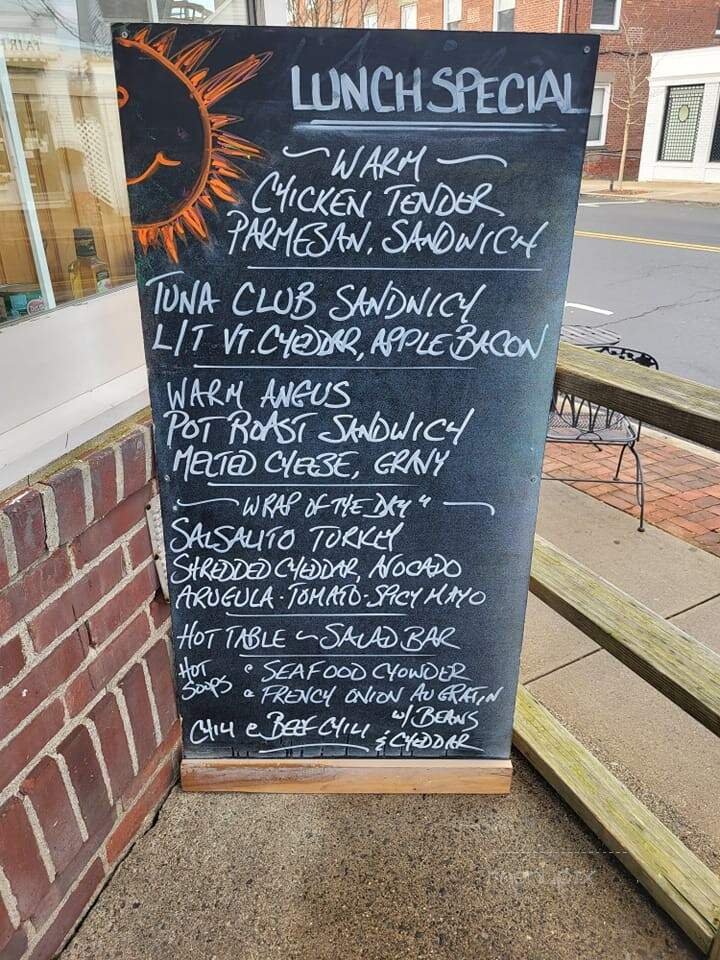 LUNCH SPECIAL
~ WARM ~
CHICKEN TENDER
PARMESAN, SANDWICH
TUNA CLUB SANDWICH
L/T VT. CHEDDAR, APPLE BACON
WARM ANGUS
POT ROAST SANDWICH
MELTED CHEESE, GRAVY
~ WRAP OF THE DAY " ~
SALSALITO TURKEY
SHREDDED CHEDDAR, AVOCADO
ARUGULA · TOMATO · SPICY MAYO
HOT TABLE ~ SALAD BAR
HOT SOUPS
• SEAFOOD CHOWDER
• FRENCH ONION AU GRATIN
CHILI • BEEF CHILI w/ BEANS
& CHEDDAR